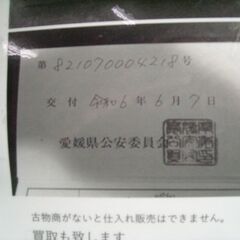 第821070004218号
交付 令和6年6月7日
愛媛県公安委員会
古物商がないと仕入れ販売はできません。
買取も致します。